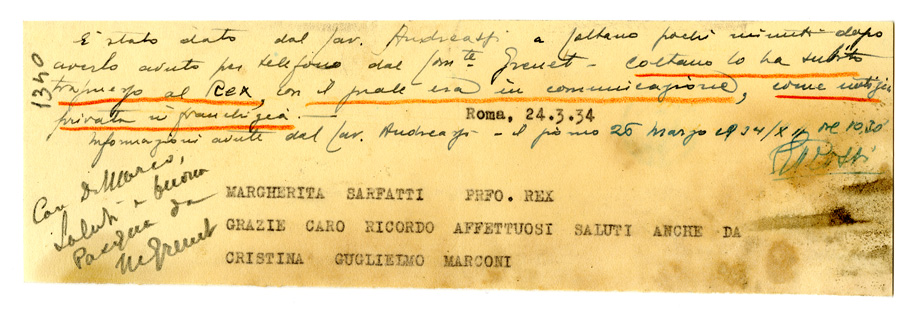 E' stato dato dal Cav. Andreassi a Coltano pochi minuti dopo
averlo avuto per telefono dal Com.te Grenet - Coltano lo ha subito
trasmesso al Rex, con il quale era in comunicazione, come notizia
privata in franchigia.
1340
Roma, 24.3.34
Informazioni avute dal Cav. Andreassi - il giorno 26 marzo 1934/XII
Caro Di Marco,
Saluti e buona
Pasqua da
MGrenet
MARGHERITA SARFATTI PRFO. REX
GRAZIE CARO RICORDO AFFETTUOSI SALUTI ANCHE DA
CRISTINA GUGLIELMO MARCONI